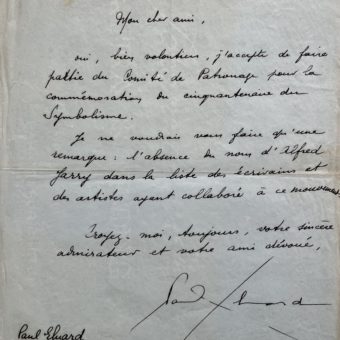 Mon cher ami,
oui, bien volontiers, j'accepte de faire
partie du Comité de Patronage pour la
commémoration du cinquantenaire du
Symbolisme.
Je ne voudrais vous faire qu'une
remarque : l'absence du nom d'Alfred
Jarry dans la liste des écrivains et
des artistes ayant collaboré à ce mouvement.
Croyez-moi, toujours, votre sincère
admirateur et votre ami dévoué,
Paul Eluard
Paul Eluard